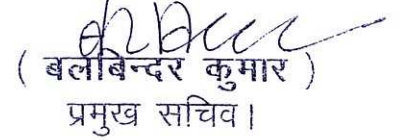 ( बलबिन्दर कुमार )
प्रमुख सचिव।